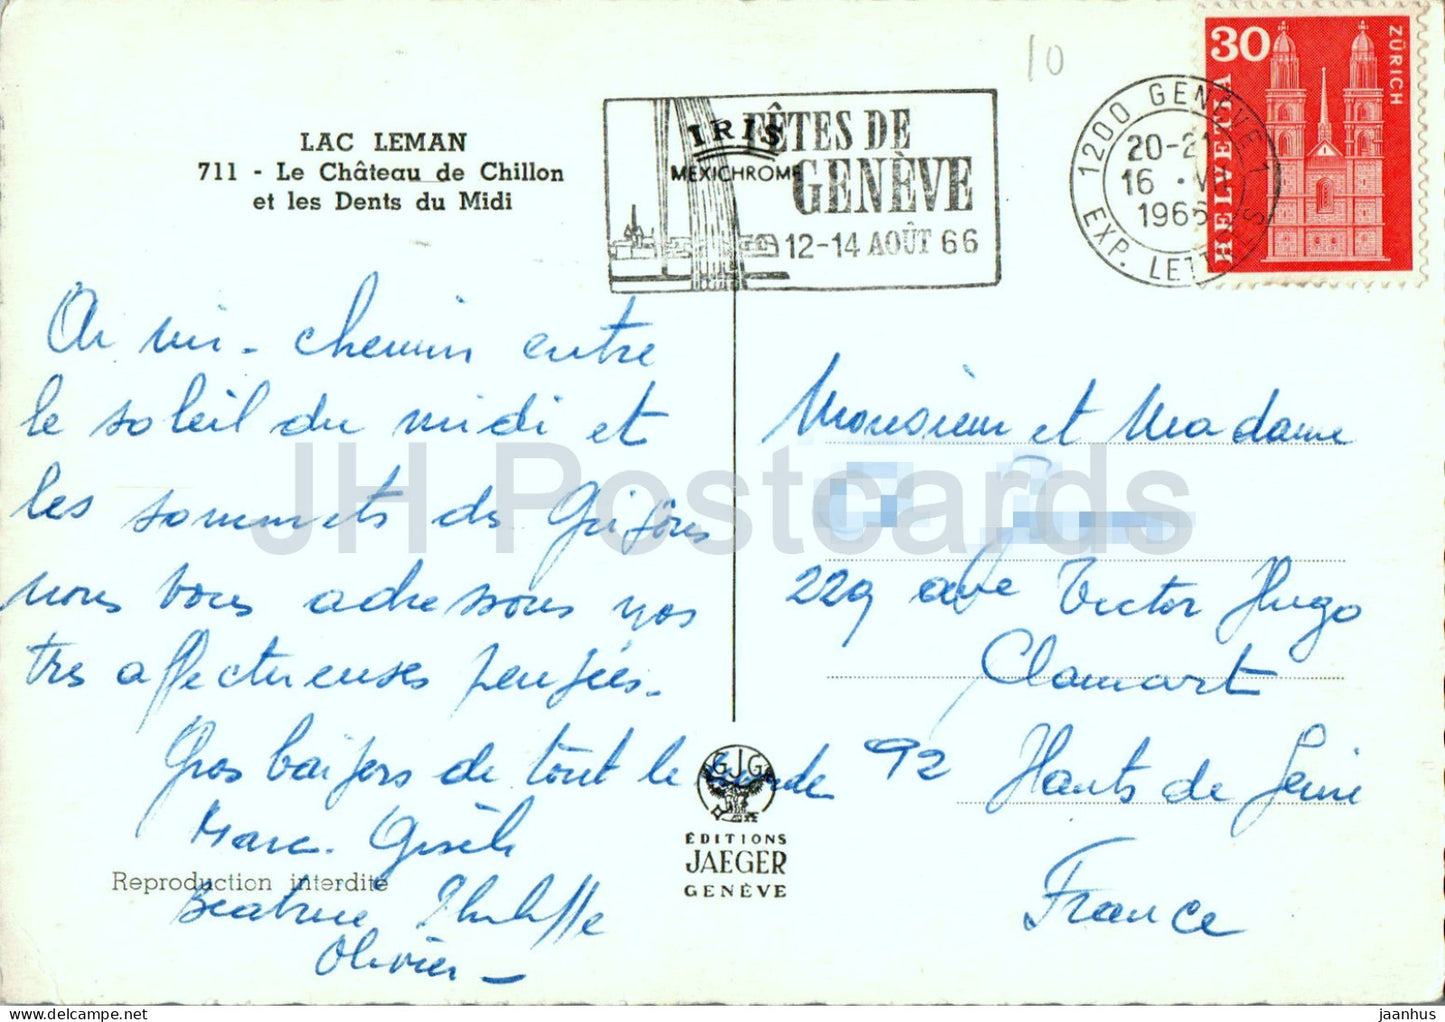 10
LAC LEMAN
711 - Le Château de Chillon
et les Dents du Midi
IRIS
MEXICHROME
FÊTES DE
GENÈVE
12-14 AOÛT 66
1200 GENÈVE 1
20-21
16 · VII
1966
EXP. LETTRES
30
HELVETIA
ZÜRICH
A mi-chemin entre
le soleil du midi et
les sommets des
nous vous adressons nos
très affectueuses pensées.
Gros baisers de tout le monde
Marc. Gisèle
Béatrice Philippe
Olivier
Monsieur et Madame
229 ave Victor Hugo
Clamart
92 Hauts de Seine
France
GJG
ÉDITIONS
JAEGER
GENÈVE
Reproduction interdite
JH Postcards
jaanhus